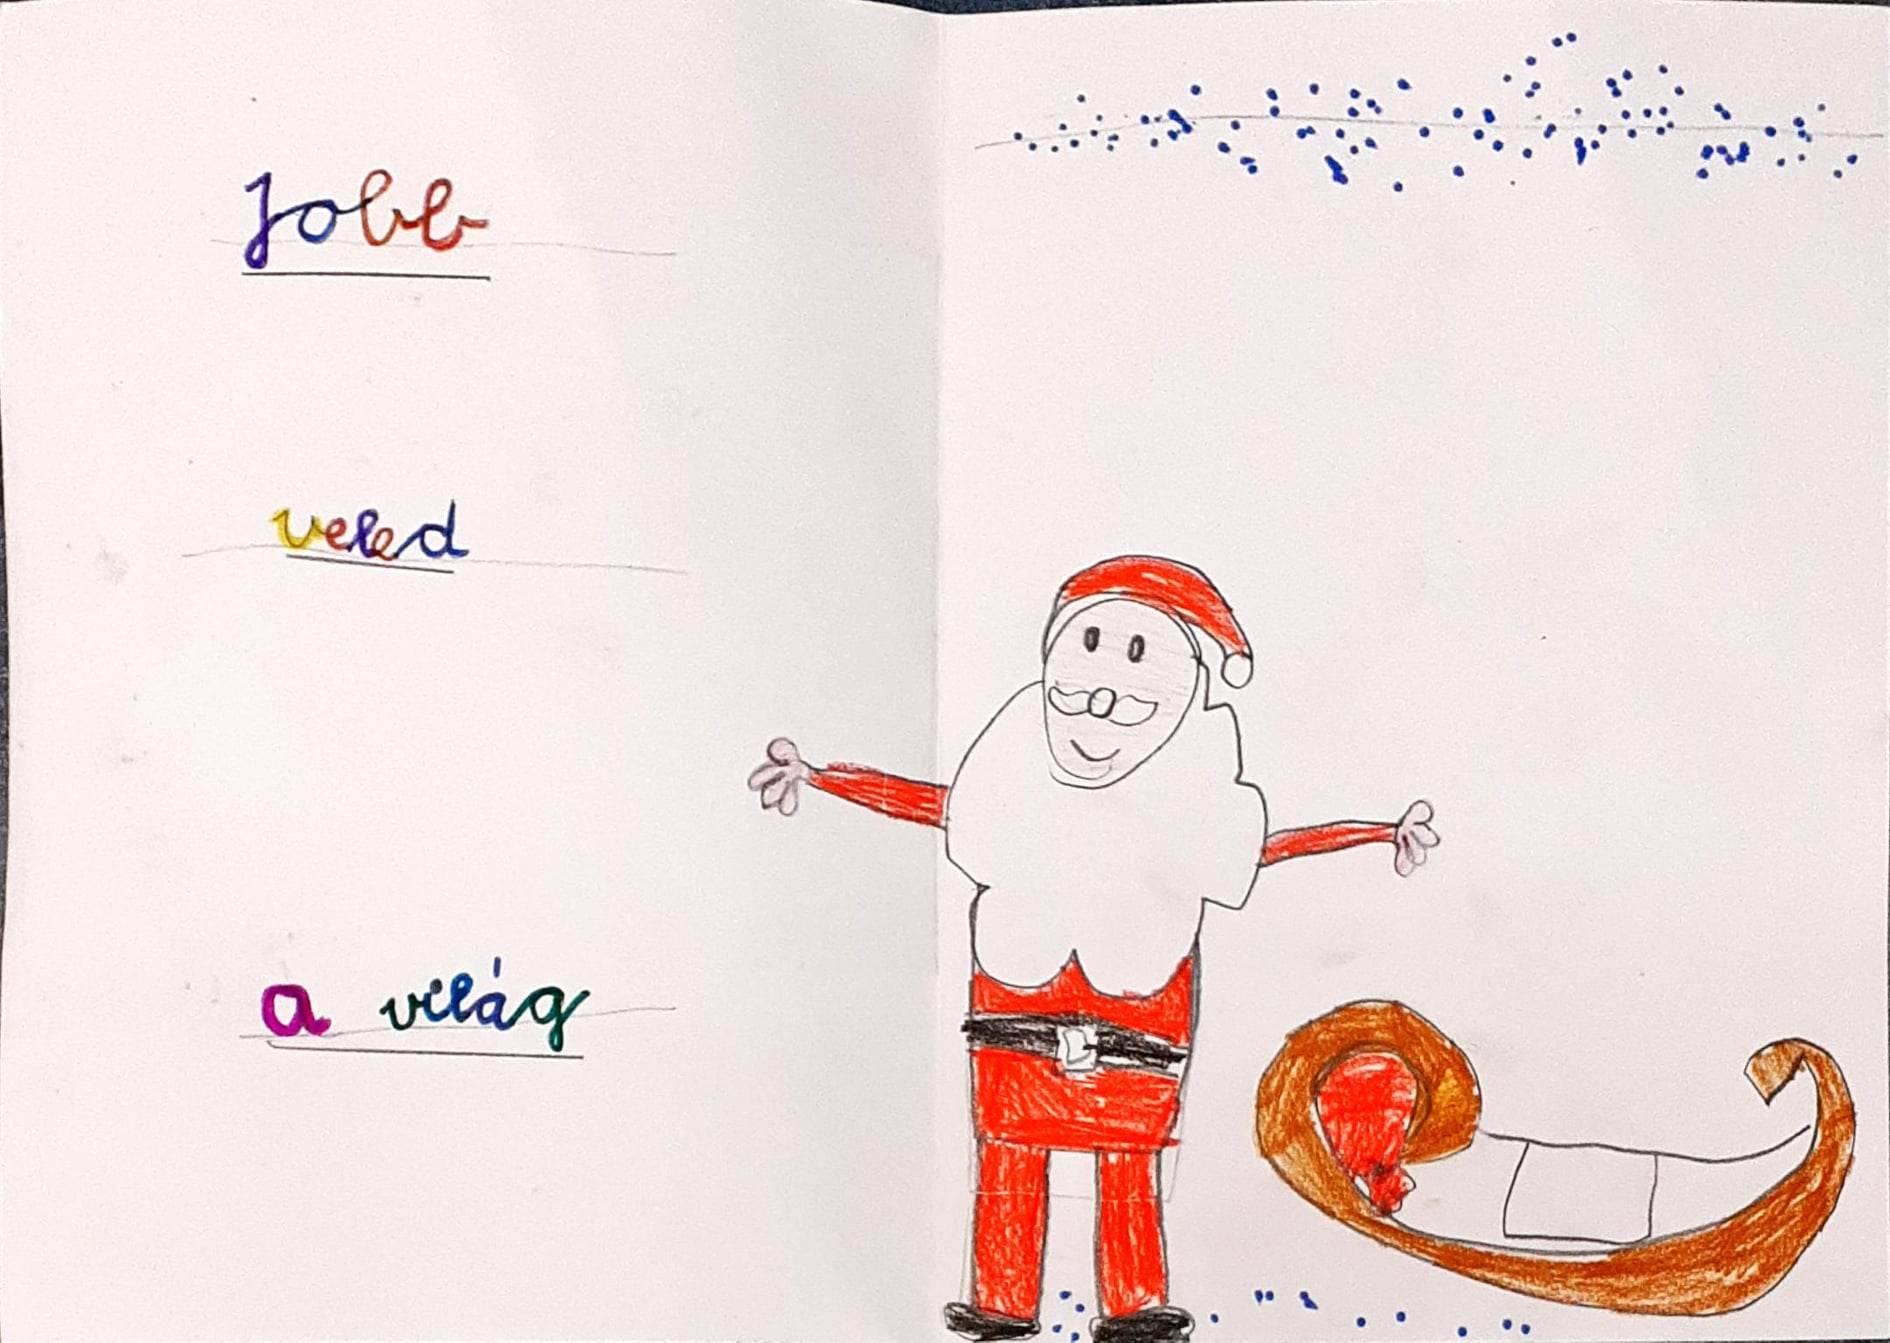 Jobb
veled
a világ